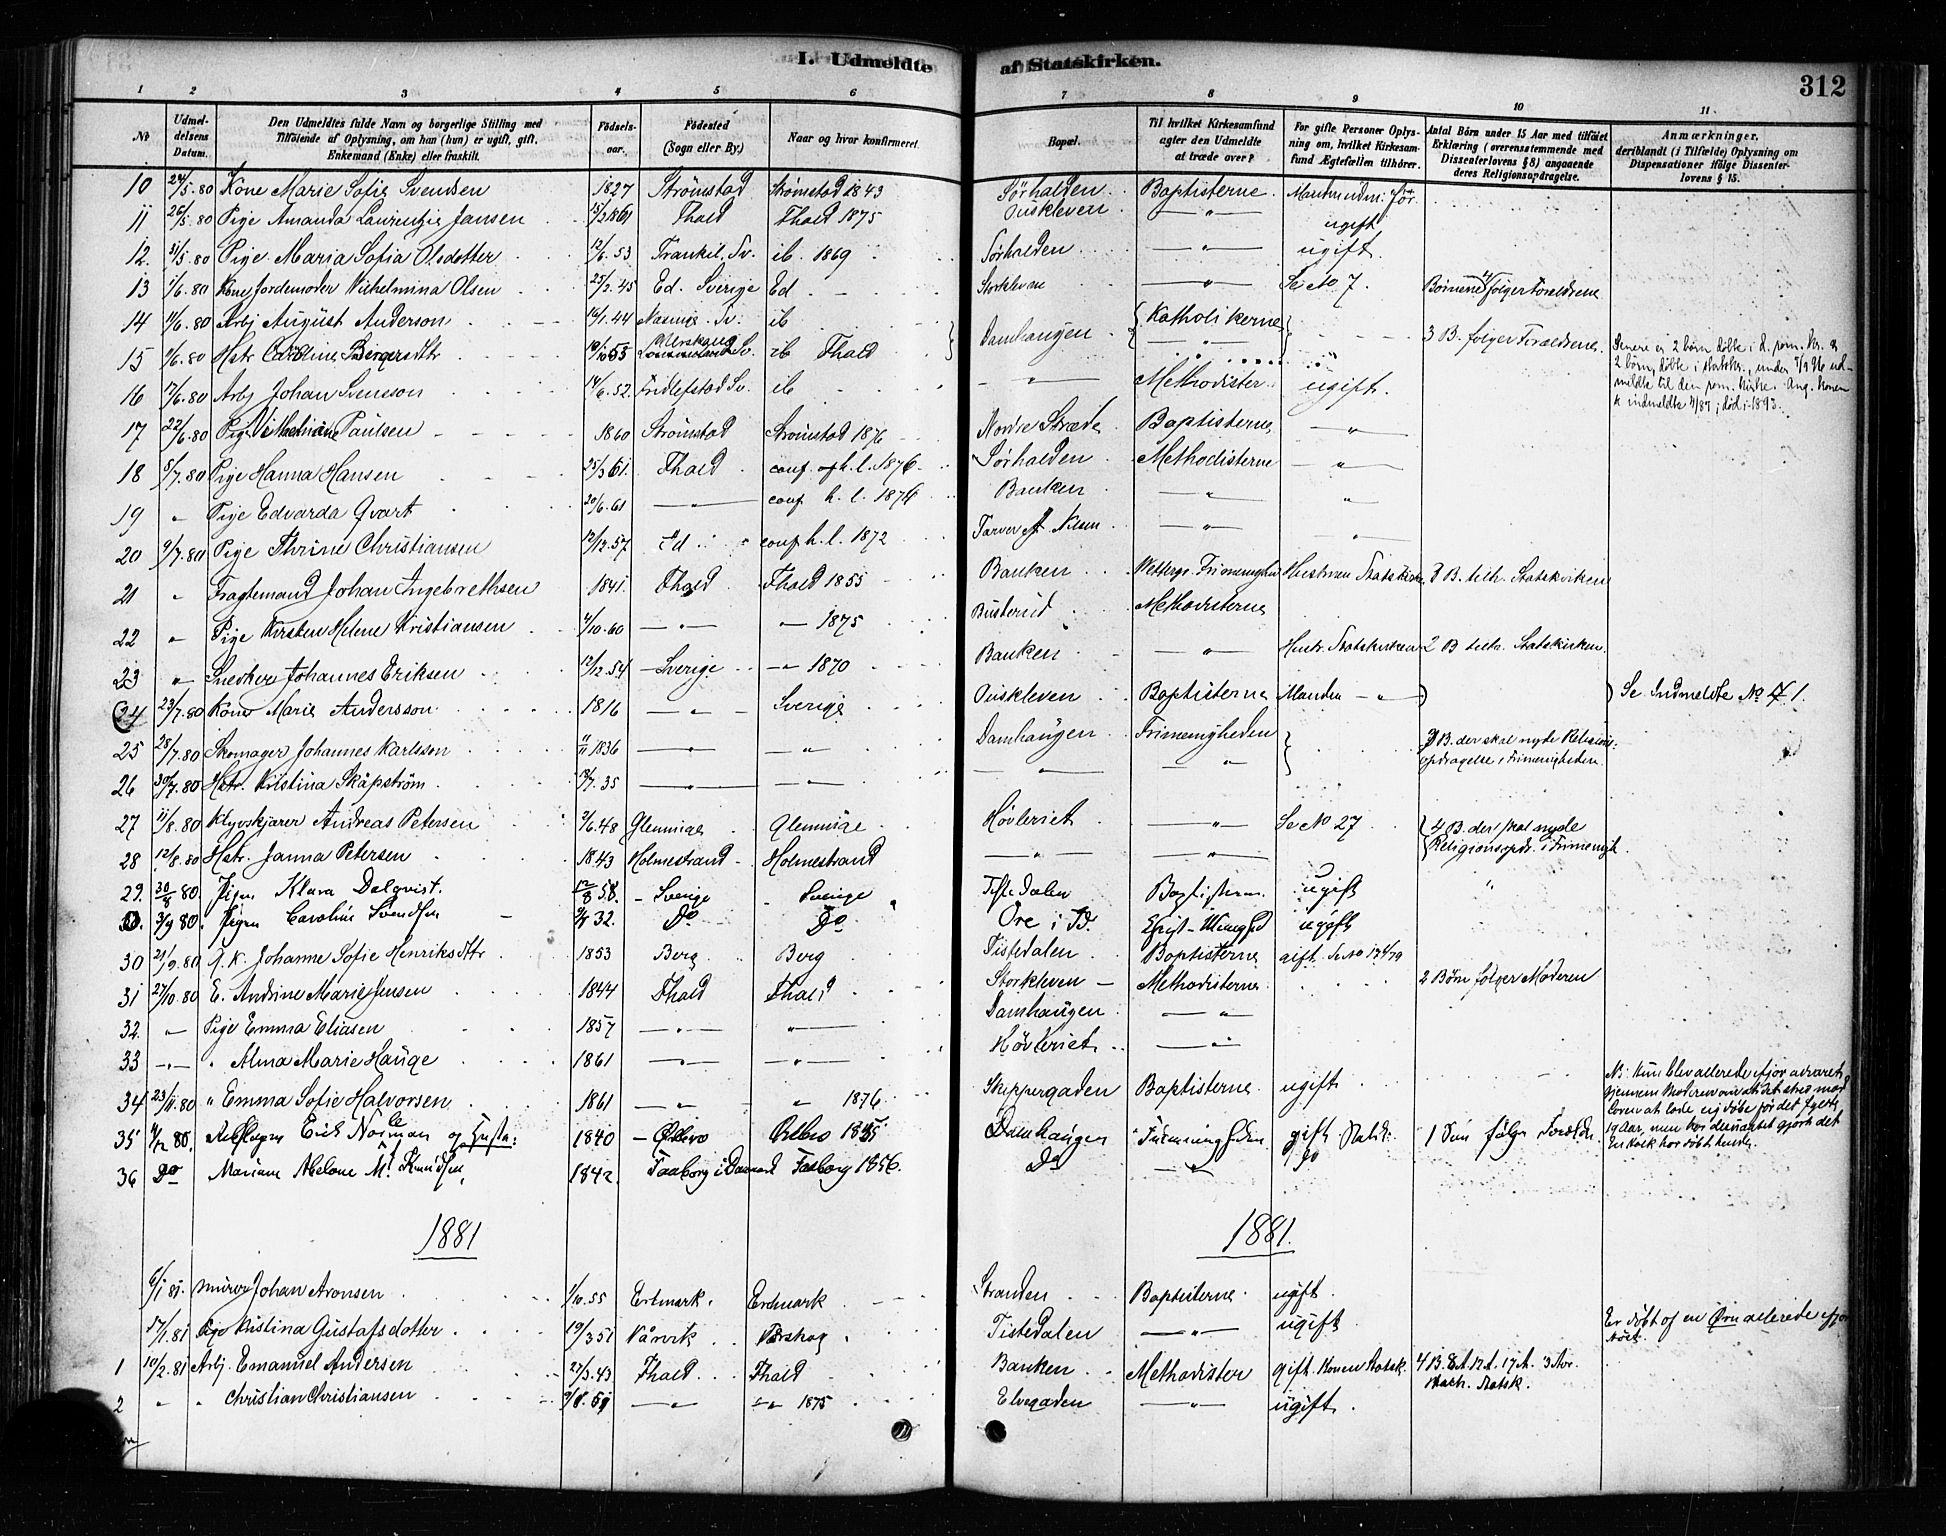 I. Udmeldte af Statskirken. 312
1 2 3 4 5 6 7 8 9 10 11
No Udmeldelsens Datum. Den Udmeldtes fulde Navn og borgerlige Stilling med Tilföiende af Oplysning, om han (hun) er ugift, gift, Enkemand (Enke) eller fraskilt. Födselsaar. Födested (Sogn eller By.) Naar og hvor konfirmeret. Bopæl. Til hvilket Kirkesamfund agter den Udmeldte at træde over? For gifte Personer Oplysning om, hvilket Kirkesamfund Ægtefællen tilhörer. Antal Börn under 15 Aar med tilföiet Erklæring (overensstemmende med Dissenterlovens § 8) angaaende deres Religionsopdragelse. Anmærkninger, deriblandt (i Tilfælde) Oplysning om Dispensationer ifölge Dissenterlovens § 15.
10 24/5.80 Kone Marie Sofie Svendsen 1827 Strömstad Strömstad 1843 Sörhalden Baptisterne
11 26/5.80 Pige Amanda Laurentzie Jansen 15/2 1861 Fhald Fhald 1875 Ouskleven —"— ugift
12. 31/5.80 Pige Maria Sofia Olsdotter 12/6.53 Frankil. Sv. ib. 1869 Sörhalden —"— ugift.
13 1/6.80 Kone Jordemoder Vilhelmina Olsen 25/2.45 Ed. Sverige Ed Storkleven —"— Se No 7. Börnene fölger Forældrene
14 4/6.80 Arbj August Anderson 16/1.44 Navinge. Sv. ib Damhaugen Katholikerne 3 B. fölger Forældrene.
15 4/6.80 Hstr Caroline Bergersdtr 10/10 55 ib Fhald —"— Senere er 2 börn döbte i d. rom. K. &
2 börn, döbte i statsk., under 7/9 96 ud-
meldte til den rom. Kirke. Ang. Konen
16 17/6.80 Arbj Johan Svenson 14/6.52. Fridlefstad Sv. ib —"— Methodister ugift.
se indmeldte 4/87; död i 1893.
17 22/6.80 Pige Vilhelmine Paulsen 1860 Strömstad Strömstad 1876 Nordre Stræde Baptisterne —"—
18 5/7.80 Pige Hanna Hansen 25/3 61. Fhald conf. af h. l. 1876 Sörhalden Methodisterne —"—
19 " Pige Edvarda Qvart 20/6.61 —"— conf h. l. 1876 Banken —"— "
20 9/7.80 Pige Thrine Christiansen 12/12.57 Id conf h. l. 1872 Farver Nilsen —"— "
21 " Fragtemand Johan Ingebrethsen 1841. Fhald Fhald 1855 Banken Frimenighed Hustruen Statskirken 3 B. tilh. Statskirken
22 " Pige Kirsten Helene Kristiansen 4/10.60 —"— —"— 1875 Busterud Methodisterne
23 " Snedker Johannes Eriksen 12/12.54 Sverige —"— 1870 Banken —"— Hustr. Statskirken 2 B tilh. Statskirken.
24 23/7.80 Kone Marie Andersson 1816 —"— Sverige Ouskleven Baptisterne Manden —"— Se Indmeldte No 1.
25 28/7.80 Skomager Johannes Karlsson 11/11 1836 —"— —"— Damhaugen Frimenigheden 3 B. der skal nyde Religions-
opdragelse i Frimenigheden
26 30/7.80 Hstr. Kristina Skäpström 13/7.35 —"— —"— —"— —"—
27 11/8.80 Klyvskjærer Andreas Petersen 2/6.48 Glemmige Glemmige Hövleriet —"— Se No 27 4 B. der skal nyde
Religionsopdr. i Frimenigh.
28 12/8.80 Hstr. Janna Petersen 1843 Holmestrand Holmestrand —"— —"—
29. 30/8 80. Pigen Klara Dalqvist. 12/8 58. Sverige Sverige Tistedalen Baptisterne ugift "
3/9 80. Pigen Caroline Svendsen 32. Do Do Öre i Id. ugift
30 21/9.80 G. K. Johanne Sofie Henriksdtr 1853 Berg Berg Tistedalen Baptisterne gift. Se No 17 4/79
31 27/10.80 E. Andrine Marie Jensen 1844 Fhald Fhald Storkleven Methodisterne 2 Börn fölger Moderen
32. —"— Pige Emma Eliasen 1857 —"— —"— Damhaugen —"—
33 —"— " Alma Marie Hauge 1861 —"— —"— Hövleriet —"—
34 23/11.80 " Emma Sofie Halvorsen 1861 —"— " 1876 Skippergaden Baptisterne ugift NB: Hun blev allerede ifjor advaret
gjennem Moderen om at det stred mod
Loven at lade sig döbe för det fyldte
19 Aar, men
35 4/12 80. Erik Norman og Hustru: 1840 Örebro Örebro 1855 Damhaugen Frimenigheden gift Statsk: 1 Sön fölger Forældr.
36 Do Mariane Abelone M. Knudsen, 1842. Faaborg i Danmark Faaborg 1856. Do —"— Do
1881 1881.
6/1 81. Murer Johan Aronsen 1/10.55 Ertmark. Ertmark Stranden Baptisterne ugift.
17/1.81 Pige Kristina Gustafsdotter 19/3 51 Värvik Tistedalen —"— ugift. Er döbt af en Örn allerede ifjor
höst.
1 10/2.81 Arbj. Emanuel Andersen 27/3.43 Fhald Fhald Banken Methodister gift. Konen Statsk. 4 B. 8 A. 12 A. 17 A. 3 Aar.
Statsk.
2 " " Christian Christiansen —"— —"— 1875 Elvegaden —"— ugift.